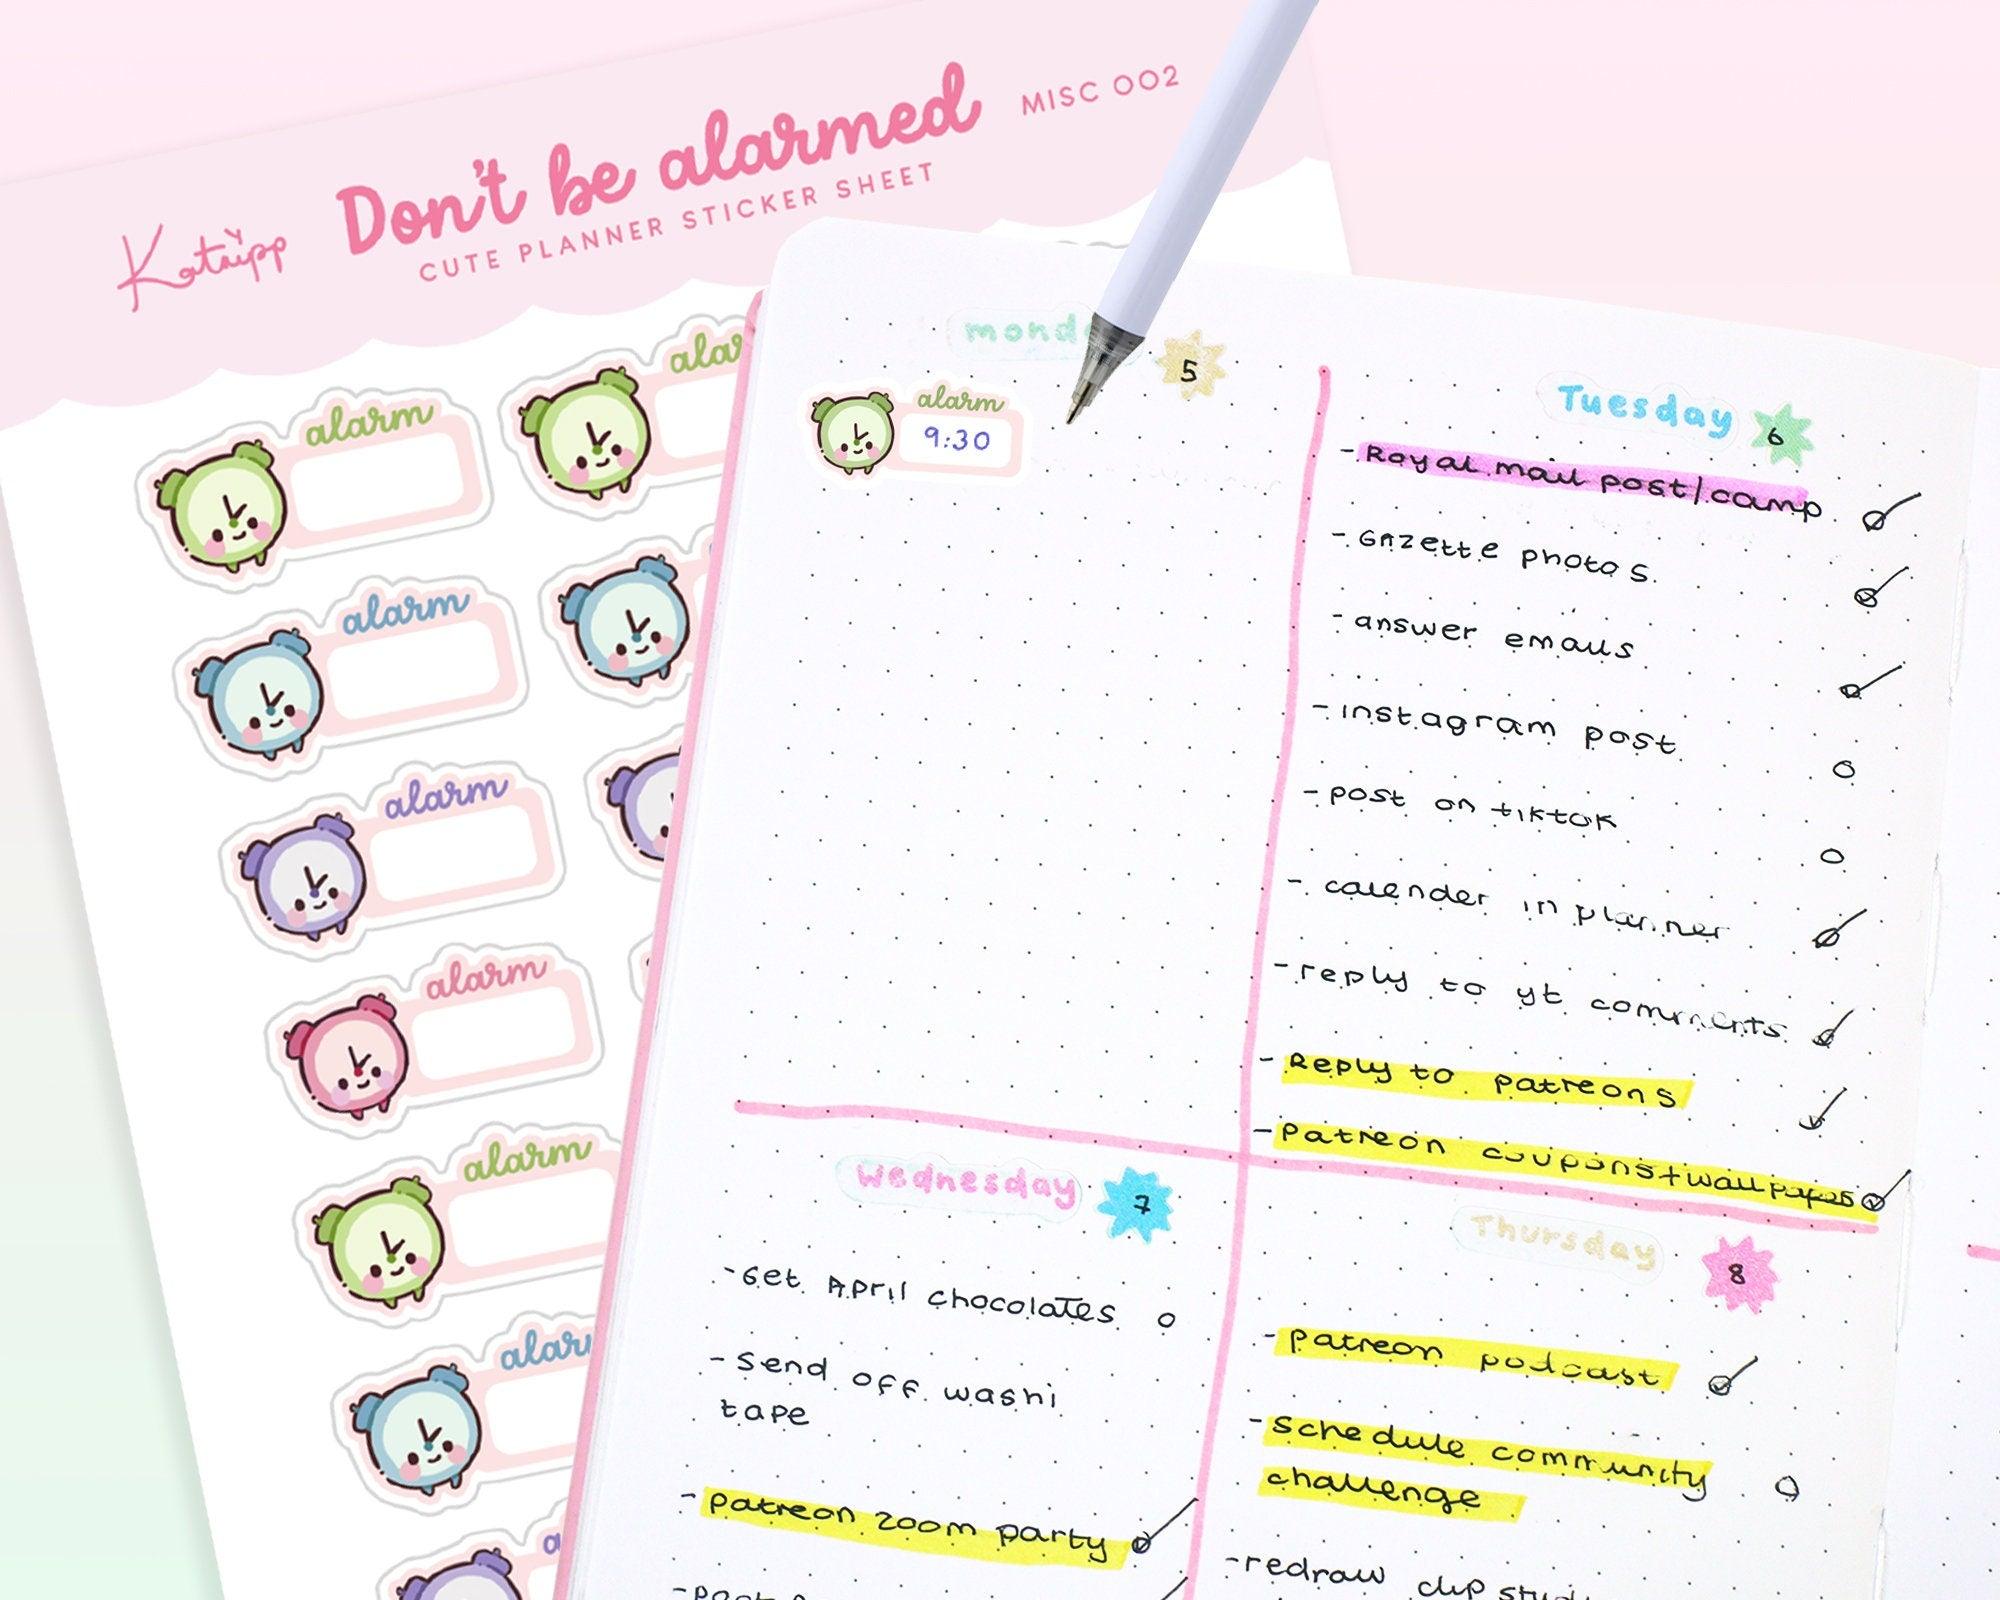 Katnipp
Don't be alarmed
MISC 002
CUTE PLANNER STICKER SHEET
alarm
alarm
alarm
alarm
alarm
alarm
monday
5
alarm
9:30
Tuesday
6
- Royal mail post/camp
- Gazette photos
- answer emails
- instagram post
- post on tiktok
- calender in planner
- reply to yt comments
- Reply to patreons
- Patreon coupons+wallpapers
Wednesday
7
- Get April chocolates
- Send off washi
tape
- Patreon zoom party
Thursday
8
- Patreon podcast
- Schedule community
challenge
- redraw clip